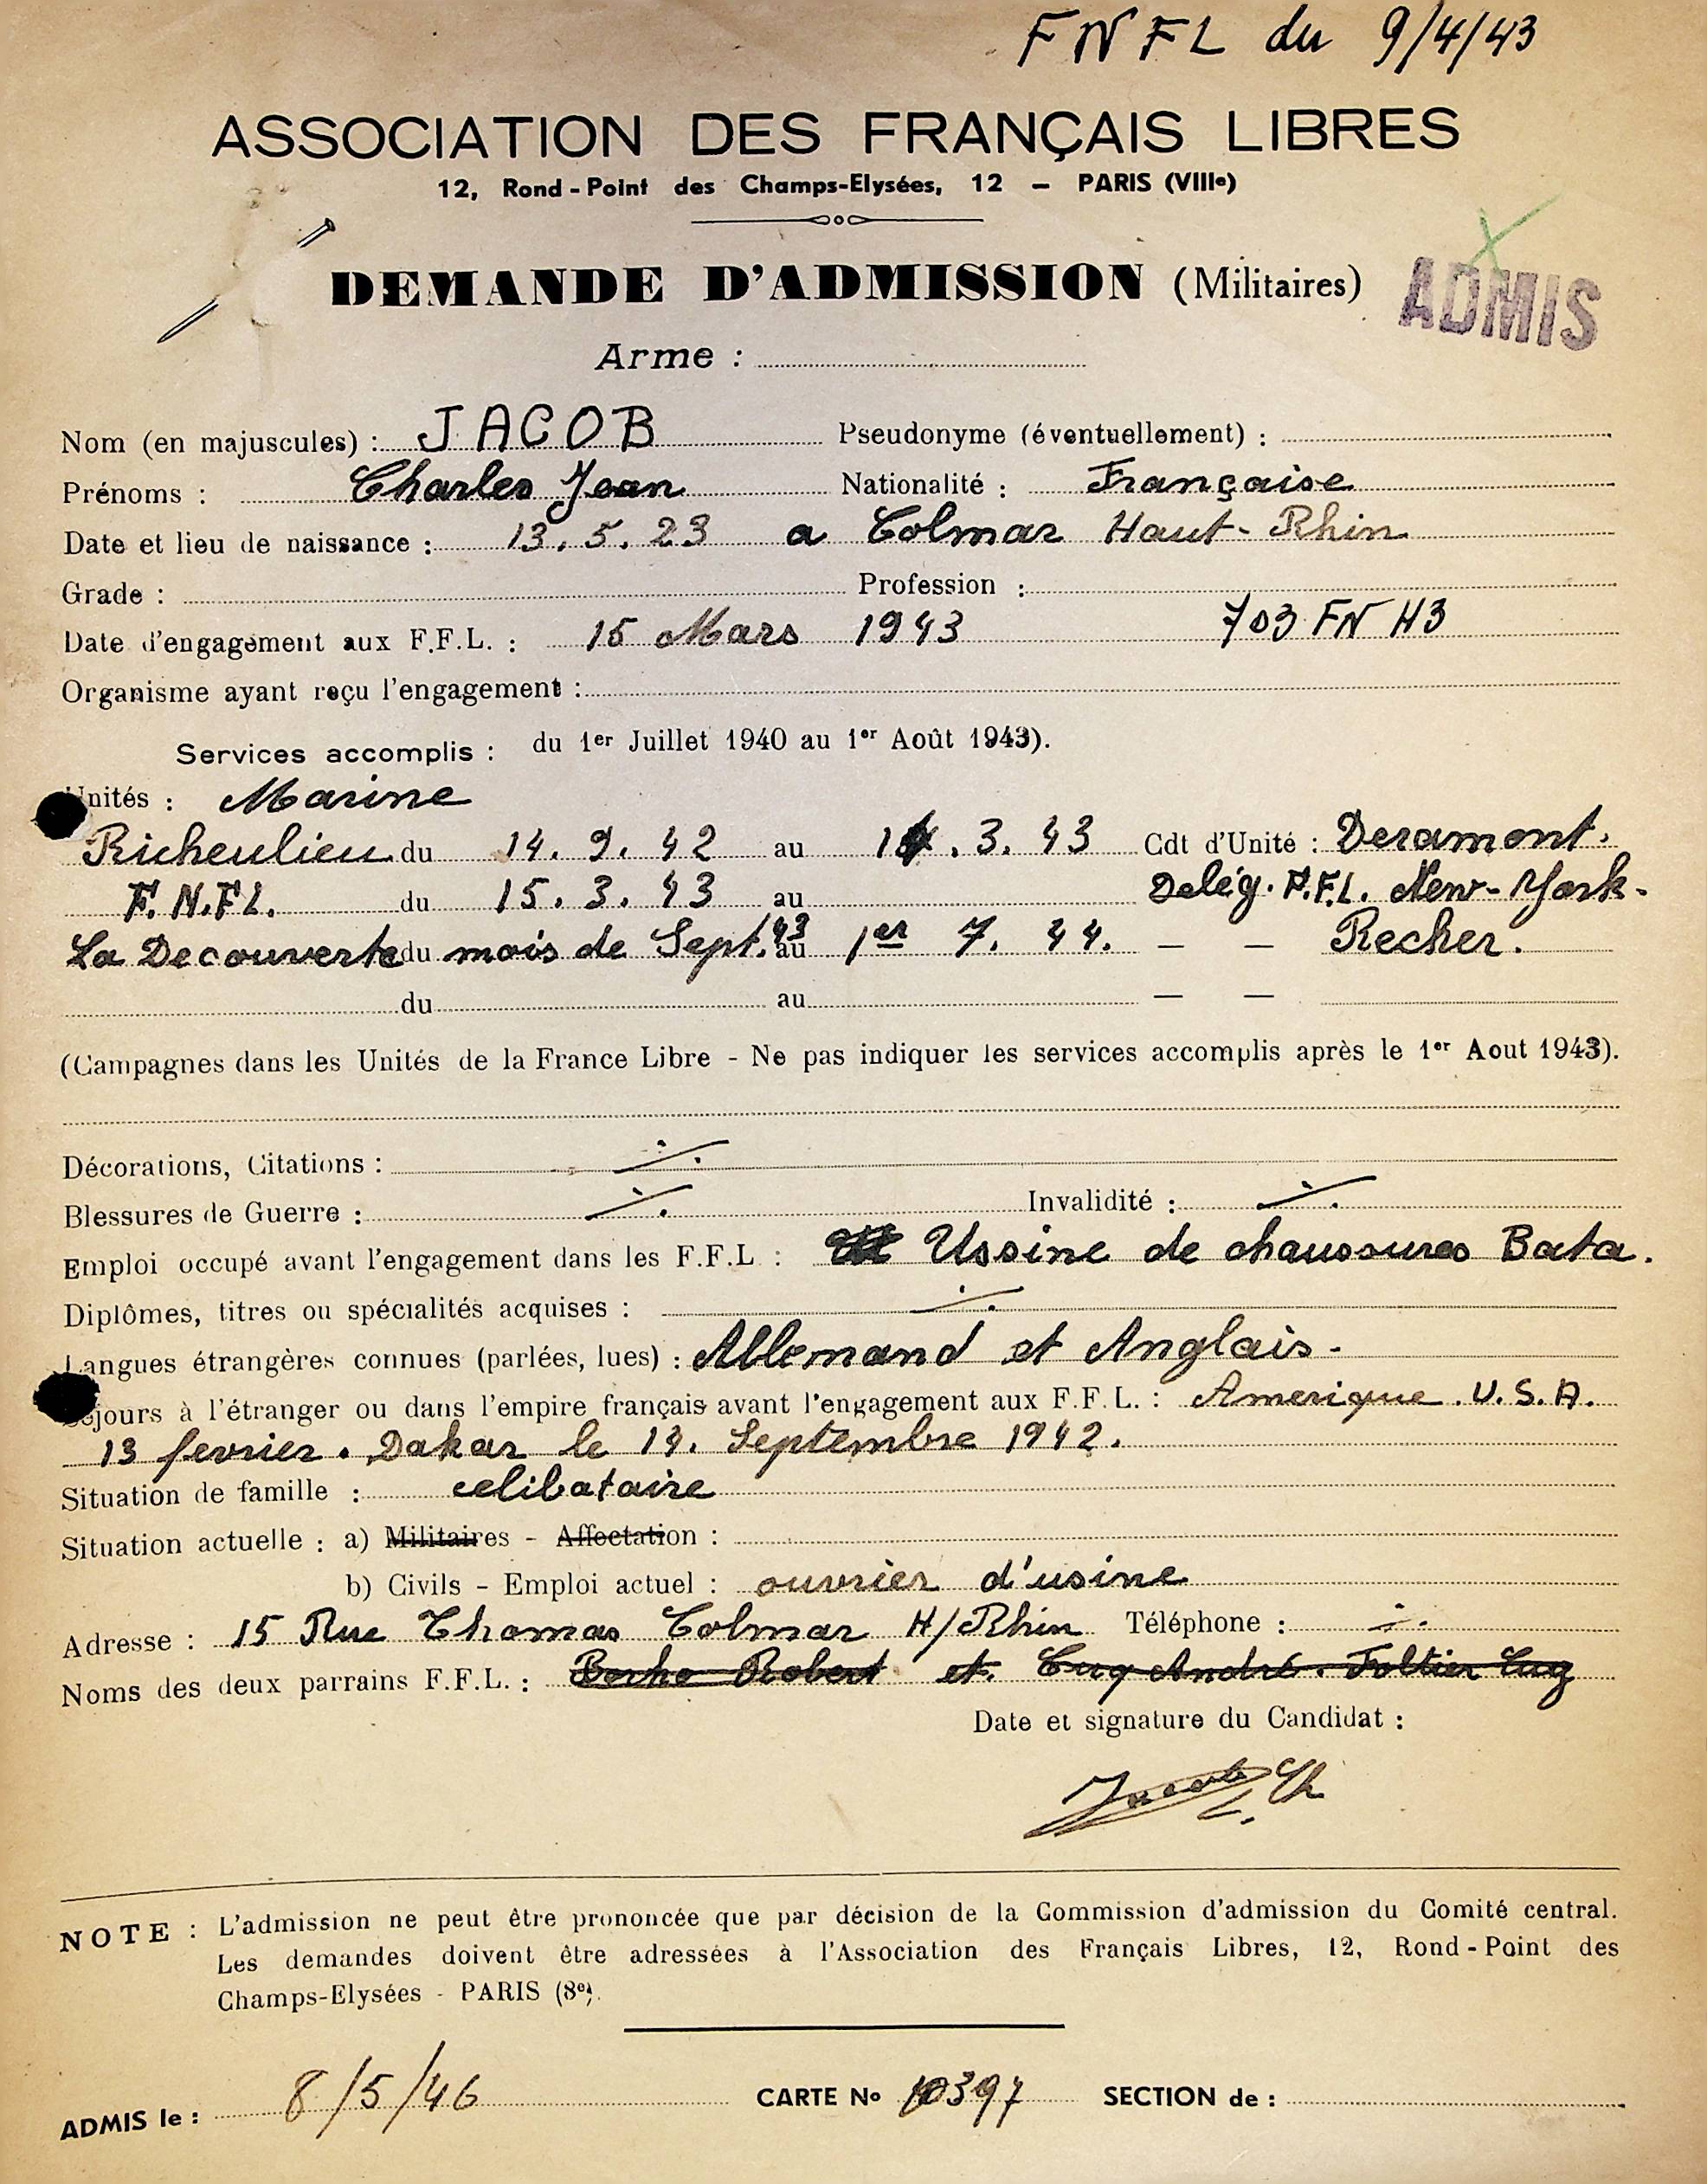 FNFL du 9/4/43
ASSOCIATION DES FRANÇAIS LIBRES
12, Rond-Point des Champs-Elysées, 12 — PARIS (VIIIe)
DEMANDE D'ADMISSION (Militaires)
ADMIS
Arme :
Nom (en majuscules) : JACOB Pseudonyme (éventuellement) :
Prénoms : Charles Jean Nationalité : Française
Date et lieu de naissance : 13.5.23 a Colmar Haut-Rhin
Grade : Profession :
Date d'engagement aux F.F.L. : 15 Mars 1943 703 FN H3
Organisme ayant reçu l'engagement :
Services accomplis : du 1er Juillet 1940 au 1er Août 1943).
Unités : Marine
Richeulieu du 14. 9. 42 au 14. 3. 43 Cdt d'Unité : Deramont.
F.N.F.L. du 15. 3. 43 au Delég. F.F.L. New-York-
La Decouverte du mois de Sept. 43 au 1er 7. 44. — — Recher.
du au — —
(Campagnes dans les Unités de la France Libre - Ne pas indiquer les services accomplis après le 1er Aout 1943).
Décorations, Citations : ./.
Blessures de Guerre : ./. Invalidité : ./.
Emploi occupé avant l'engagement dans les F.F.L : Ussine de chaussures Bata.
Diplômes, titres ou spécialités acquises : ./.
Langues étrangères connues (parlées, lues) : Allemand et Anglais.
Séjours à l'étranger ou dans l'empire français avant l'engagement aux F.F.L. : Amerique. U.S.A.
13 fevrier. Dakar le 14. Septembre 1942.
Situation de famille : celibataire
Situation actuelle : a) Militaires - Affectation :
b) Civils - Emploi actuel : ouvrier d'usine
Adresse : 15 Rue Thomas Colmar H/Rhin Téléphone : ./.
Noms des deux parrains F.F.L. : Robert et. André.
Date et signature du Candidat :
Jacob Ch
NOTE : L'admission ne peut être prononcée que par décision de la Commission d'admission du Comité central.
Les demandes doivent être adressées à l'Association des Français Libres, 12, Rond-Point des
Champs-Elysées - PARIS (8e).
ADMIS le : 8/5/46 CARTE No 10397 SECTION de :